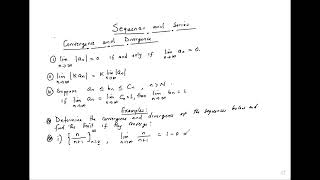 Sequences and Series
Convergence and Divergence
① lim |an| = 0 if and only if lim an = 0.
n→∞ n→∞
② lim |K an| = K lim |an|
n→∞ n→∞
③ Suppose an ≤ bn ≤ Cn, n > N.
if lim an = Cn = L, then lim bn = L
n→∞ n→∞
Examples:
Determine the convergence and divergence of the sequences below and
find the limit if they converge:
1) {n/n+1}∞n=1, lim n/n+1 = 1
n→∞